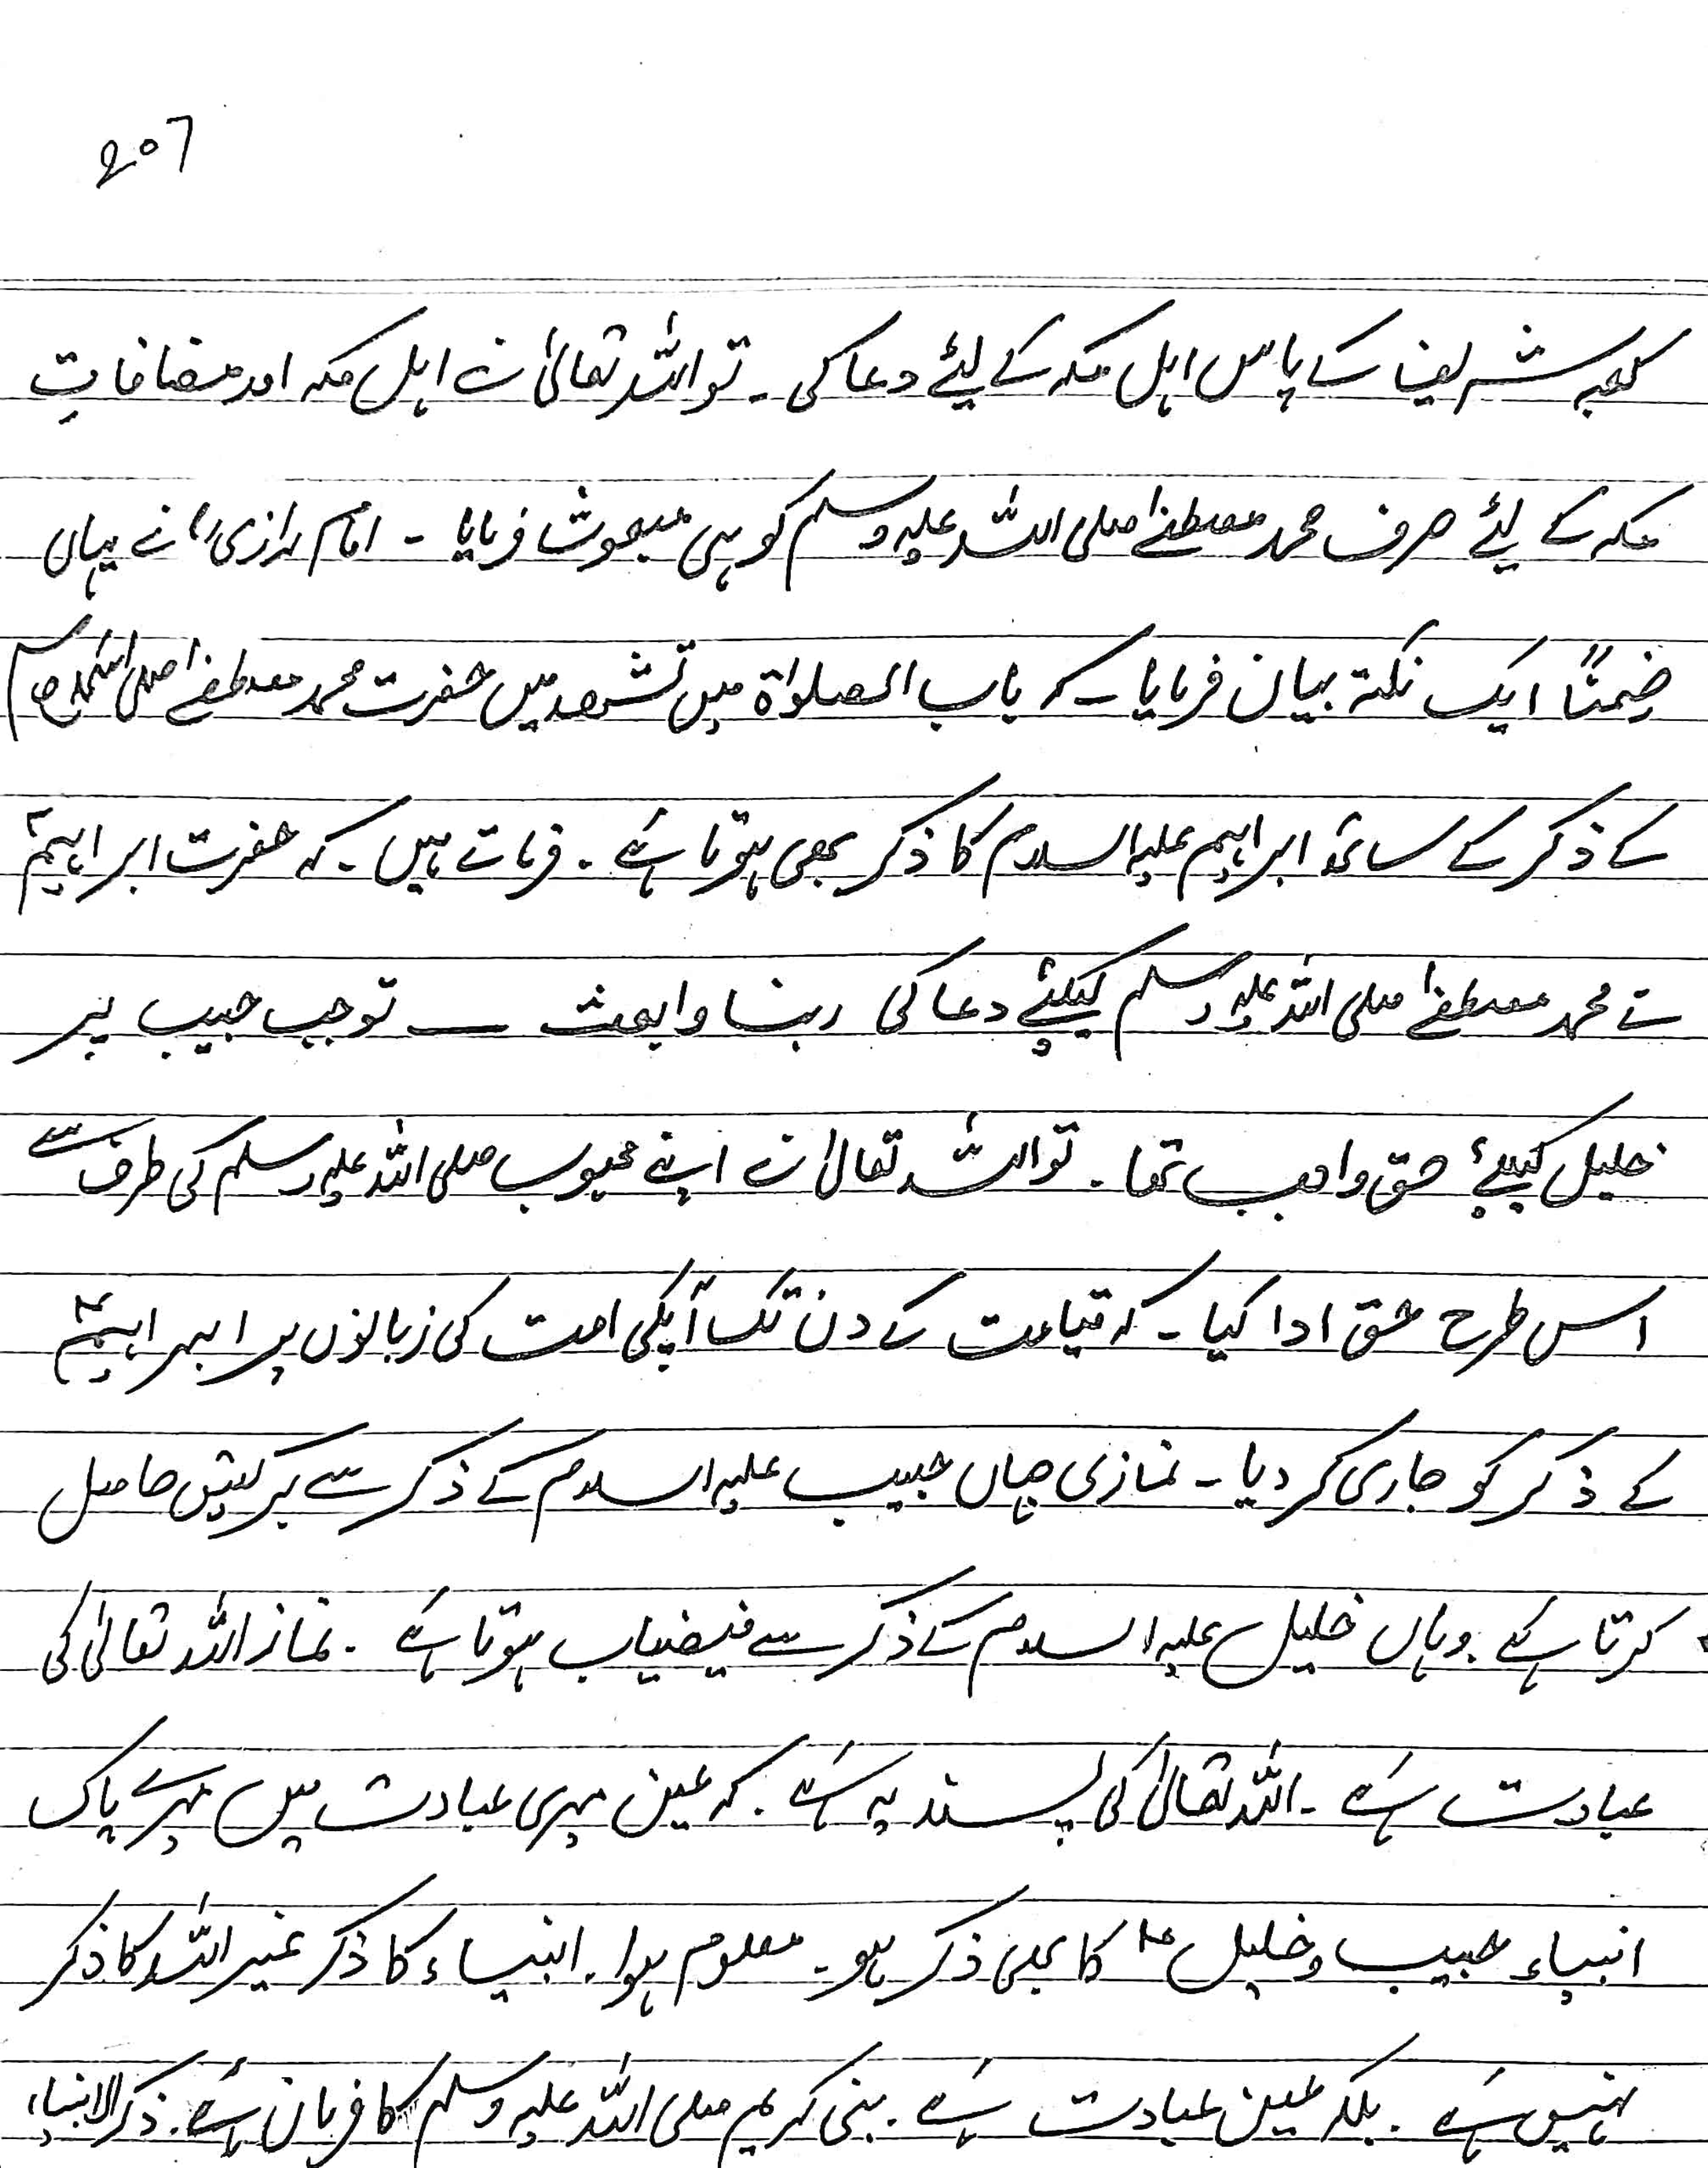 207
کعبہ شریف کے پاس اہل مکہ کے لیٔے دعا کی ۔ تو اللہ تعالیٰ نے اہل مکہ اور مضافاتِ
مکہ کے لیٔے صرف محمد مصطفےٰ صلی اللہ علیہ وسلم کو ہی مبعوث فرمایا ۔ امام رازیؒ نے یہاں
ضِمناً ایک نکتہ بیان فرمایا ۔ کہ باب الصلوٰۃ میں تشھد میں حضرت محمد مصطفےٰ صلی اللہ علیہ وسلم
کے ذکر کے ساتھ ابراہیم علیہ السلام کا ذکر بھی ہوتا ہَے ۔ فرماتے ہیں ۔ کہ حضرت ابراہیمؑ
نے محمد مصطفےٰ صلی اللہ علیہ وسلم کیلئے دعا کی ربنا وابعث ـــ تو جب حبیب پر
خلیل کیلئے حق واجب تھا ۔ تو اللہ تعالیٰ نے اپنے محبوب صلی اللہ علیہ وسلم کی طرف سے
اس طرح حق ادا کیا ۔ کہ قیامت کے دن تک آپکی امت کی زبانوں پر ابراہیمؑ
کے ذکر کو جاری کر دیا ۔ نمازی جہاں حبیب علیہ السلام کے ذکر سے برکتیں حاصل
کرتا ہَے . وہاں خلیل علیہ السلام کے ذکر سے فیضیاب ہوتا ہَے . نماز اللہ تعالیٰ کی
عبادت ہَے ۔ اللہ تعالیٰ کی پسند یہ ہَے . کہ عین میری عبادت میں میرے پاک
انبیاء حبیب و خلیلؑ کا بھی ذکر ہو ۔ معلوم ہوا . انبیاء کا ذکر غیر اللہ کا ذکر
نہیں ہَے . بلکہ عین عبادت ہَے . نبی کریم صلی اللہ علیہ وسلم کا فرمان ہَے . ذکر الانبیاء